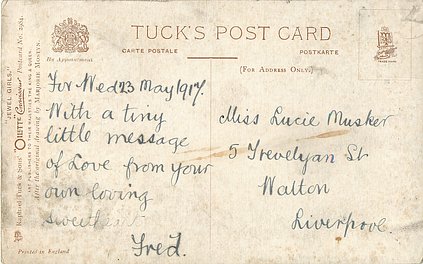 TUCK'S POST CARD
CARTE POSTALE
POSTKARTE
By Appointment
(For Address Only.)
"JEWEL GIRLS."
Raphael Tuck & Sons' "OILETTE" Connoisseur Postcard No. 2984.
ART PUBLISHERS TO THEIR MAJESTIES THE KING & QUEEN.
After the original drawing by Marjorie Mostyn.
Printed in England
For Wed 23 May 1917.
With a tiny
little message
of Love from your
own loving
sweetheart
Fred.
Miss Lucie Musker
5 Trevelyan St
Walton
Liverpool.